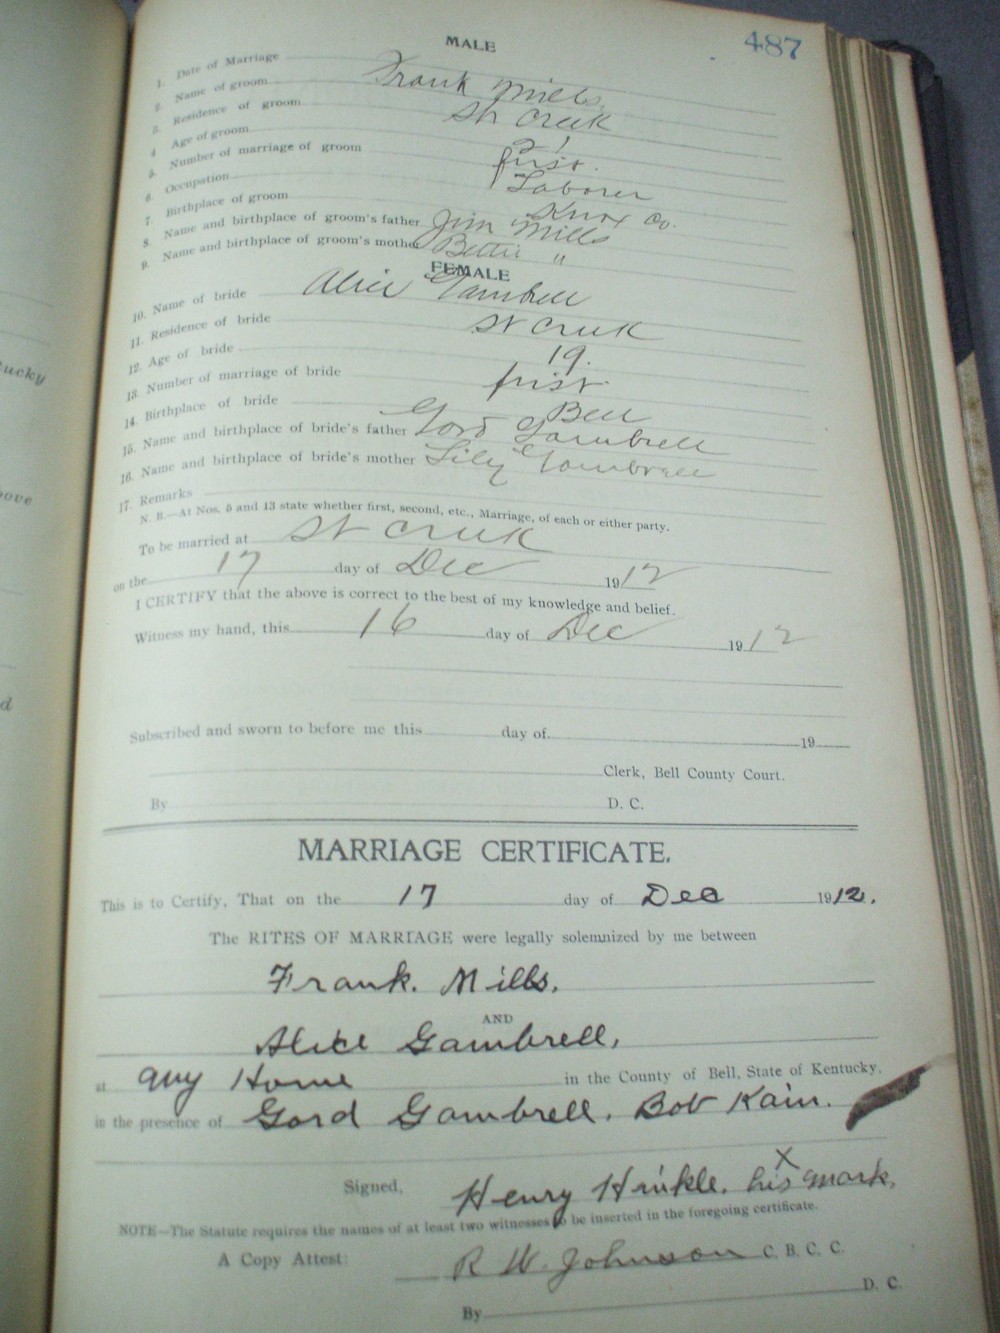 487
MALE
1. Date of Marriage
2. Name of groom Frank Mills.
3. Residence of groom St Creek
4 Age of groom 21
5. Number of marriage of groom first.
6 Occupation Laborer
7. Birthplace of groom Knox Co.
8. Name and birthplace of groom's father Jim Mills
9. Name and birthplace of groom's mother Bettie "
FEMALE
10. Name of bride Alice Gambrell
11. Residence of bride St Creek
12. Age of bride 19.
13. Number of marriage of bride first
14. Birthplace of bride Bell
15. Name and birthplace of bride's father Gord Gambrell
16. Name and birthplace of bride's mother Lily Gambrell
17. Remarks
N. B.—At Nos. 5 and 13 state whether first, second, etc., Marriage, of each or either party.
To be married at St Creek
on the 17 day of Dec 1912
I CERTIFY that the above is correct to the best of my knowledge and belief.
Witness my hand, this 16 day of Dec 1912
Subscribed and sworn to before me this day of 19
Clerk, Bell County Court.
By D. C.
MARRIAGE CERTIFICATE.
This is to Certify, That on the 17 day of Dec 1912.
The RITES OF MARRIAGE were legally solemnized by me between
Frank. Mills,
AND
Alice Gambrell,
at my Home in the County of Bell, State of Kentucky,
in the presence of Gord Gambrell. Bob Kain.
X
Signed, Henry Hinkle. his mark,
NOTE—The Statute requires the names of at least two witnesses to be inserted in the foregoing certificate.
A Copy Attest: R W. Johnson C. B. C. C.
By D. C.